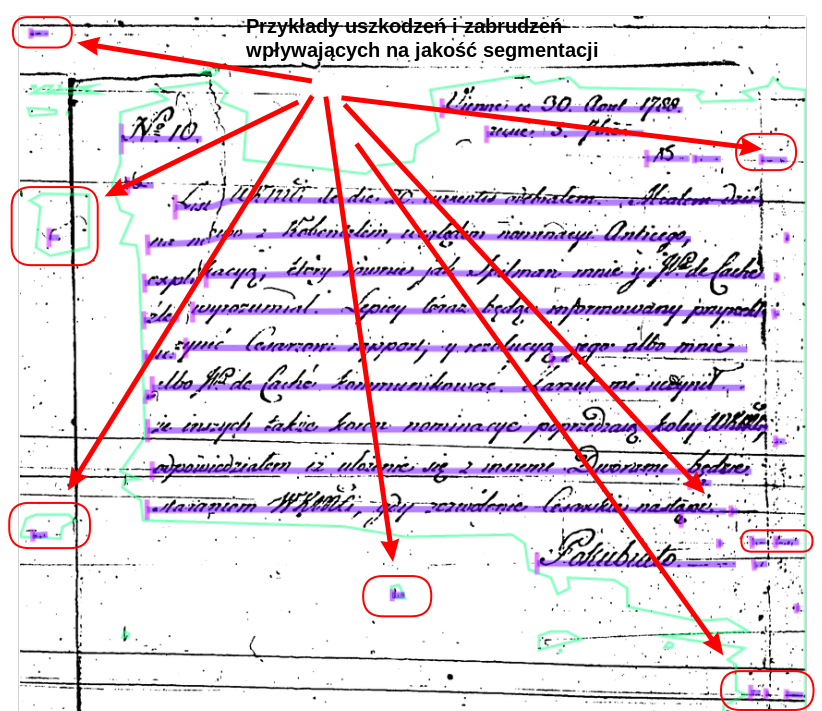 Przykłady uszkodzeń i zabrudzeń
wpływających na jakość segmentacji
Vienne ce 30. Aout 1788.
No 10.
15
List WKMci de die 20. currentis odebrałem. Miałem dziś
na n z Kobenzlem, względem nominacyi Anticego,
expli kacyą, który równie jak Spilman mnie y Mr. de Caché
źle wyrozumiał. Lepiey teraz będąc informowany przyrzekł
uczynić Cesarzowi rapport, y rezolucyą jego albo mnie
albo Mr. de Caché kommunikować. Zarzut mi uczynił
że inszych także koron nominacye poprzedzają koley WKMci,
odpowiedziałem iż ułożenie się z inszemi Dworzmi będzie
staraniem WKMci, gdy zezwolenie Cesarskie nastąpi.